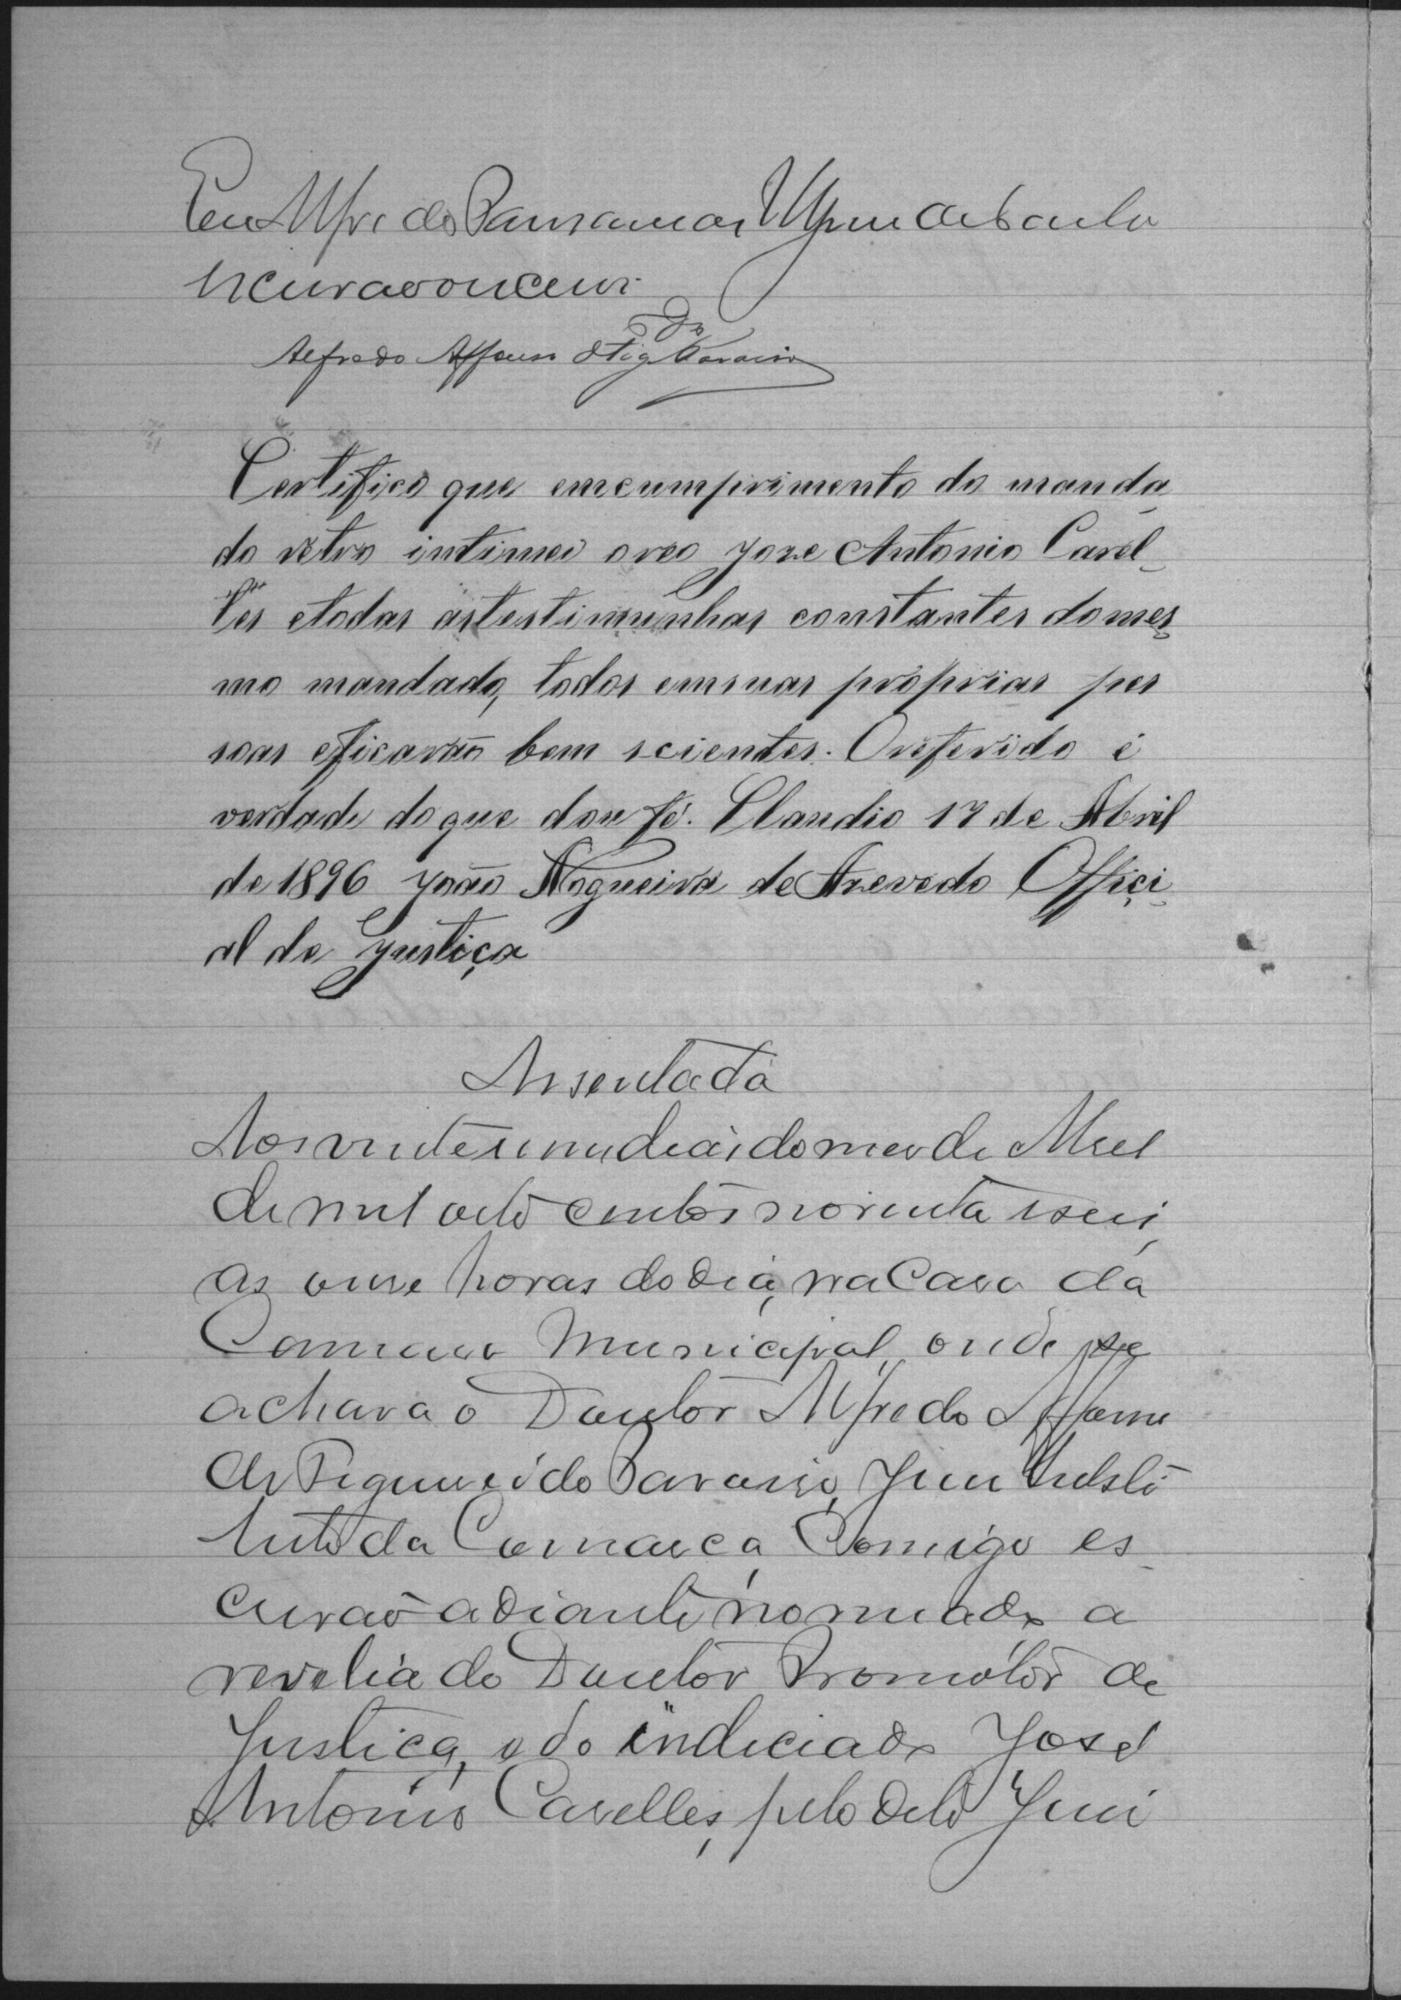 Eu Alfredo
escrivão o escrevi.
Alfredo Affonso de Fig.do
Certifico que em cumprimento do manda
do retro intimei o reo Joze Antonio Carel-
les e todas as testimunhas constantes do mes
mo mandado, todos em suas próprias pes
soas e ficarão bem scientes. O referido é
verdade do que dou fé. Claudio 17 de Abril
de 1896 João Nogueira de Azevedo Offici-
al de Justiça
Assentada
Aos vinte e um dias do mes de Abril
de mil oito centos noventa e seis,
as onze horas do dia, na Casa da
Camara Municipal, onde se
achava o Doutor Alfredo Affonso
de Figueiredo Juiz Substi
tuto da Comarca, Comigo es
crivão adiante nomeado a
revelia do Doutor Promotor de
Justiça, e do indiciado José
Antonio Carelles, pelo dito Juiz